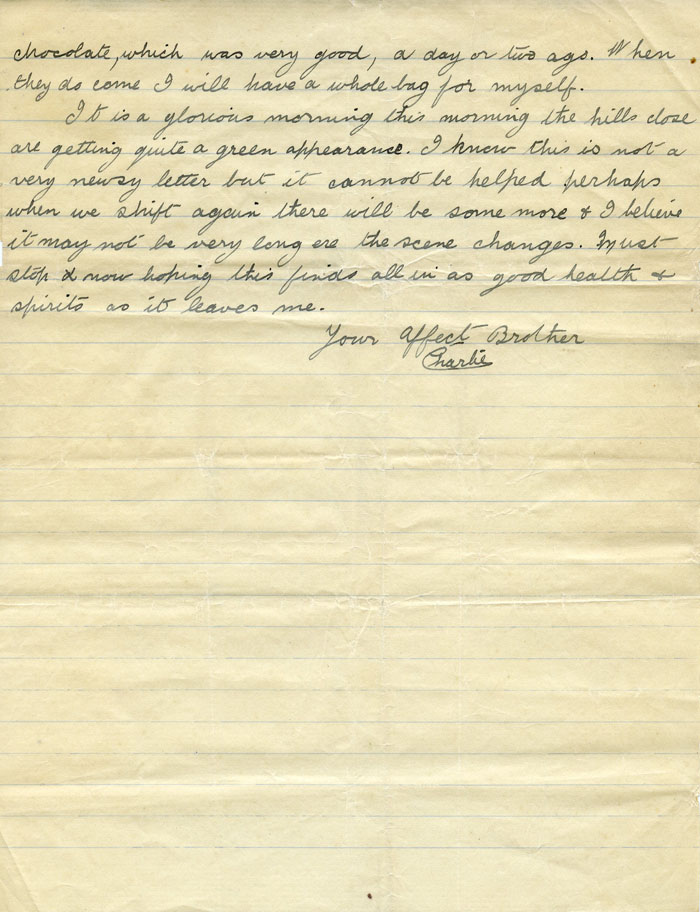 chocolate, which was very good, a day or two ago. When
they do come I will have a whole bag for myself.
It is a glorious morning this morning the hills close
are getting quite a green appearance. I know this is not a
very newsy letter but it cannot be helped perhaps
when we shift again there will be some more & I believe
it may not be very long ere the scene changes. Must
stop & now hoping this finds all in as good health &
spirits as it leaves me.
Your Affect Brother
Charlie